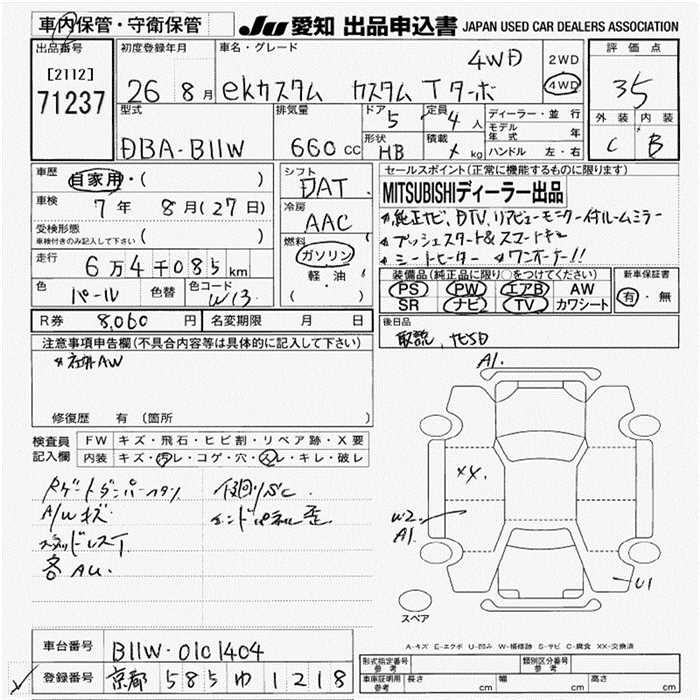 車内保管・守衛保管
JU 愛知 出品申込書 JAPAN USED CAR DEALERS ASSOCIATION
出品番号
[2112]
71237
初度登録年月
26 8月
車名・グレード
ekカスタム カスタム T ターボ
4WD
2WD
4WD
評価点
35
型式
DBA-B11W
排気量
660 CC
ドア
5
定員
4 人
形状
HB
積載
kg
ディーラー・並行
モデル年式 年
ハンドル 左・右
外装 内装
C B
車歴
自家用・( )
車検
7年 8月(27日)
受検形態
車検付きのみ記入して下さい ( )
走行
6万4千085km
色
パール
色替
色コード
W13
シフト
DAT
冷房
AAC
燃料
ガソリン
軽・油
( )
セールスポイント(正常に機能するものに限る)
MITSUBISHIディーラー出品
*純正ナビ、DTV、リアビューモニター付ルームミラー
*プッシュスタート&スマートキー
*シートヒーター *ワンオーナー!!
装備品(純正品に限り○をつけてください)
PS PW エアB AW
SR ナビ TV カワシート
新車保証書
有・無
R券 8,060 円 名変期限 月 日
後日品
取説、ナビSD
注意事項申告欄(不具合内容等は具体的に記入して下さい)
*社外AW
修復歴 有(箇所 )
検査員記入欄
FW キズ・飛石・ヒビ割・リペア跡・X要
内装 キズ・汚レ・コゲ・穴・スレ・キレ・破レ
A/Wキズ
スタッドレスT
各AU.
エンドパネル歪
A1.
XX.
W2
A1.
U1
スペア
A-キズ E-エクボ U-凹み W-補修跡 S-サビ C-腐食 XX-交換済
車台番号 B11W-0101404
登録番号 京都 585 ゆ 1218
形式指定番号 参考 類別区分番号 参考
車庫証明用 参考 長さ cm 幅 cm 高さ cm